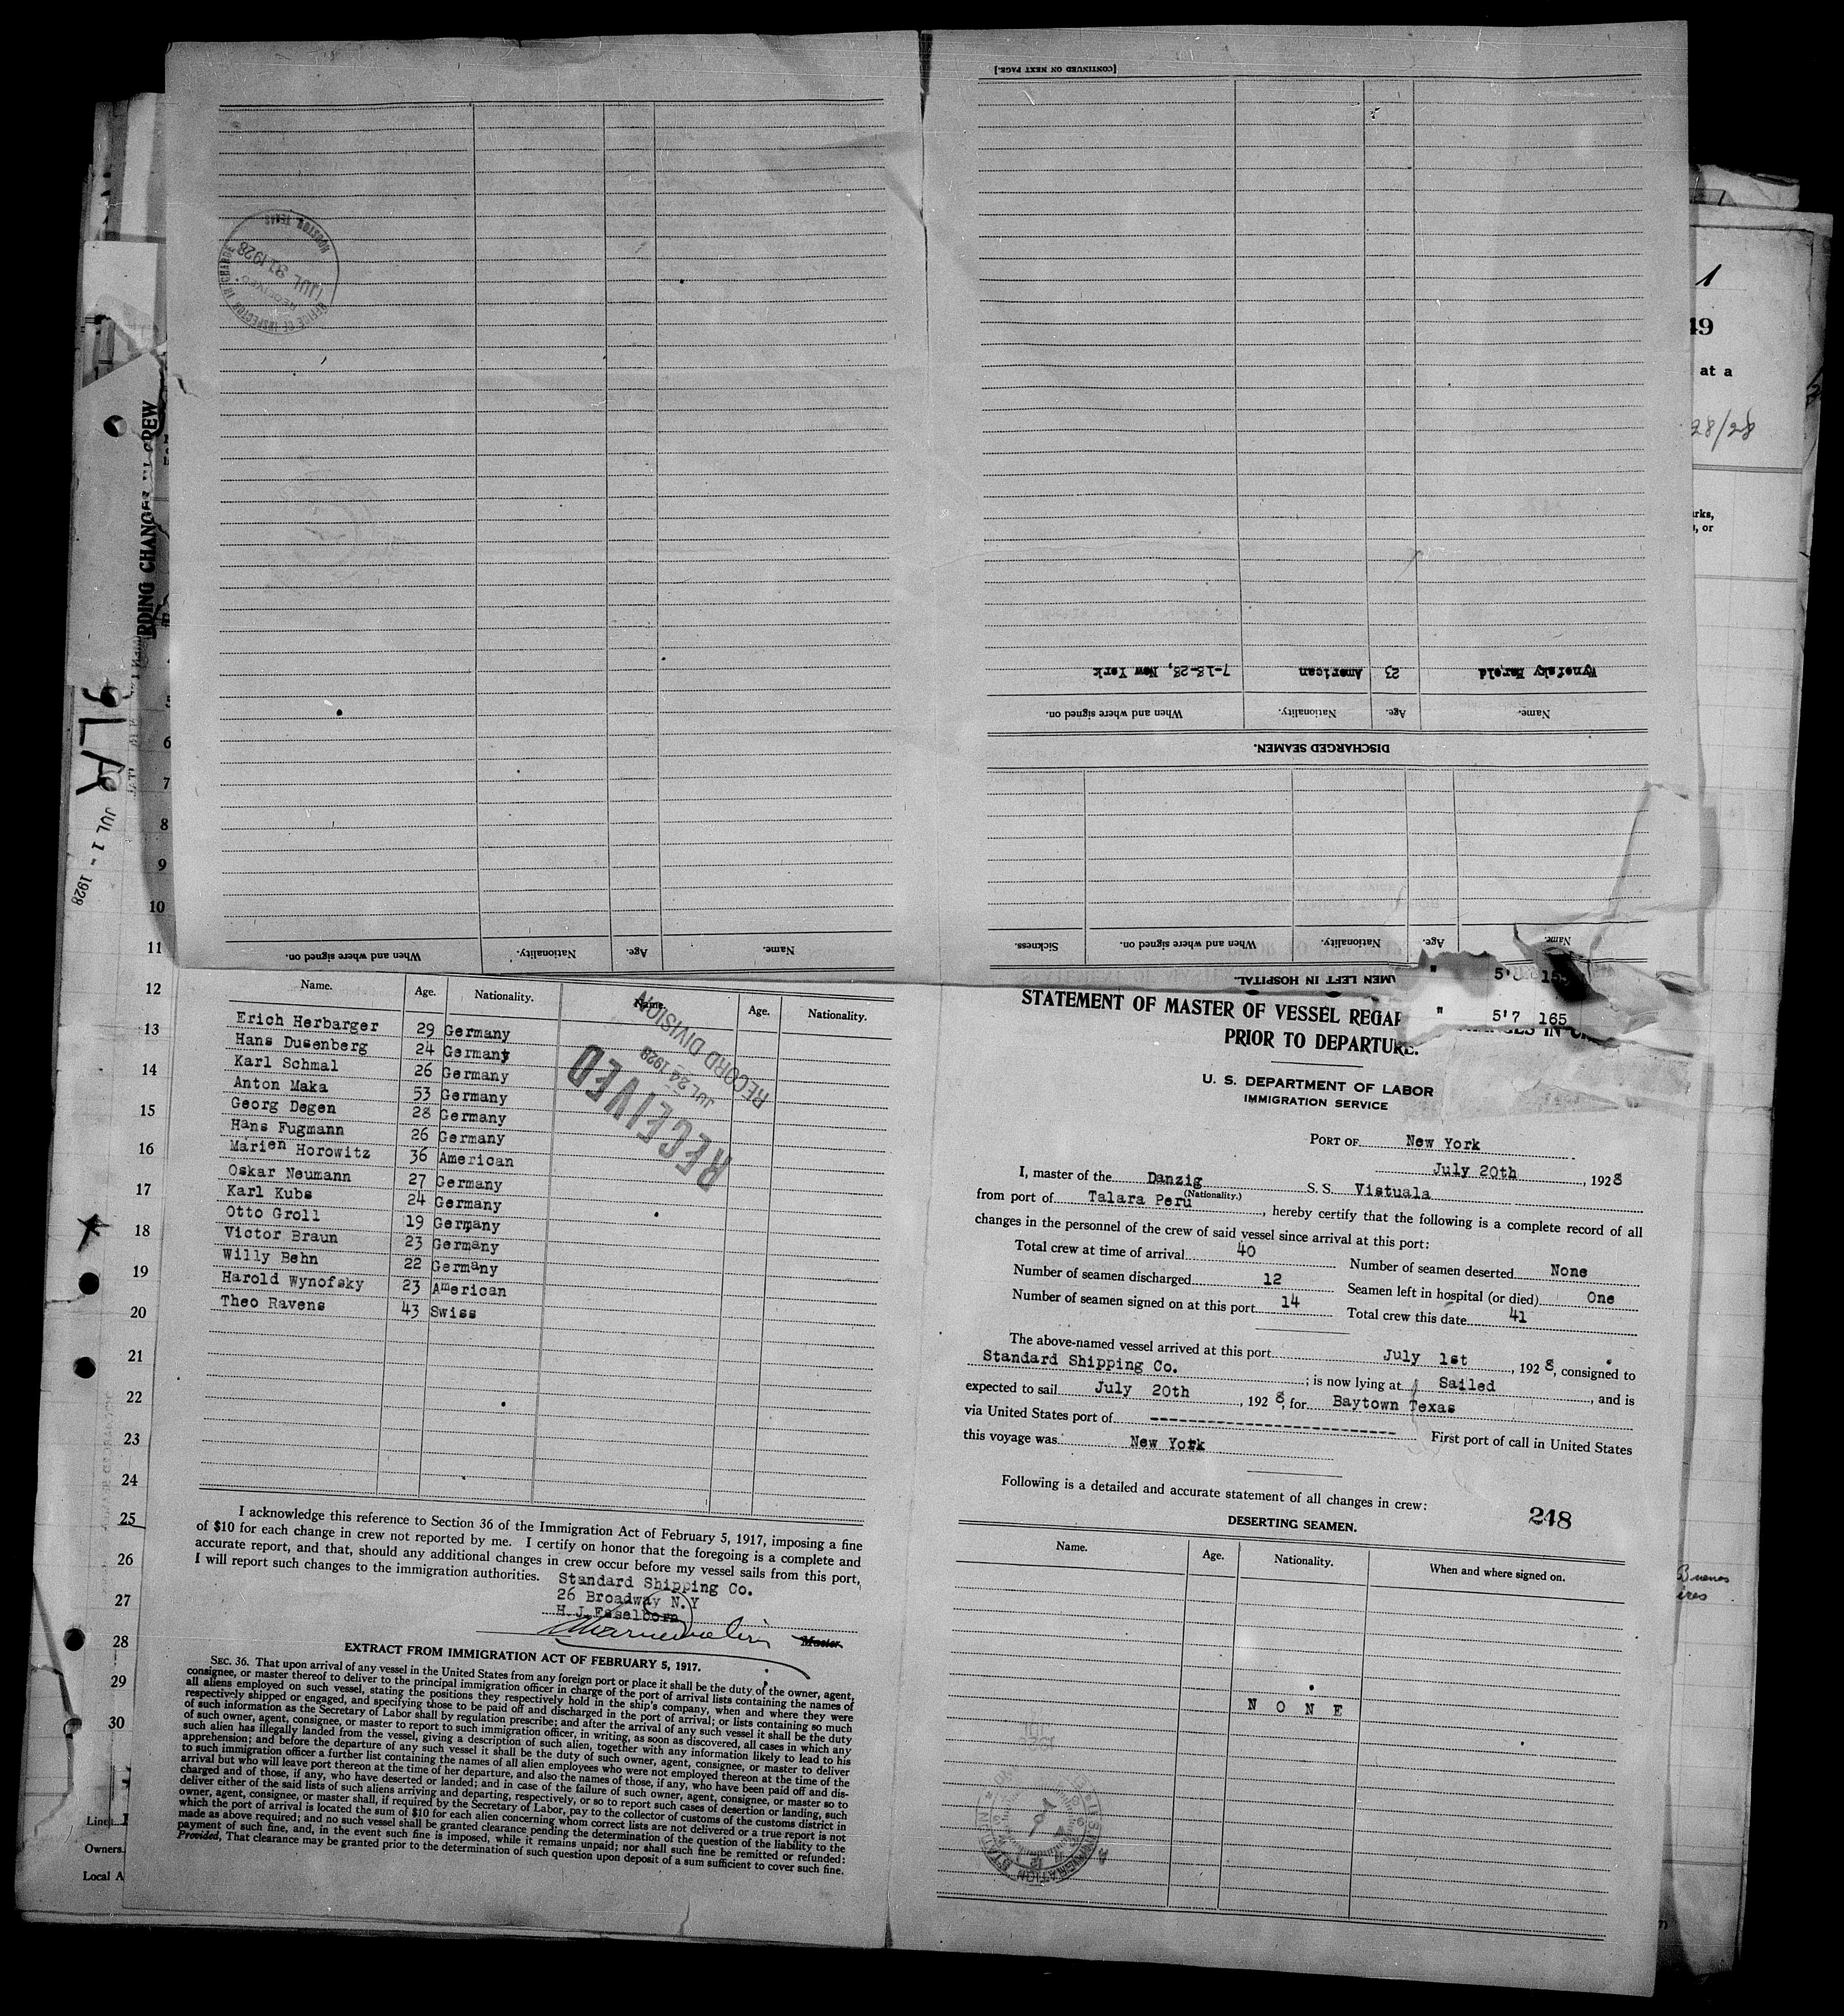 [CONTINUED ON NEXT PAGE.]
Wynofsky Harold 23 American 7-18-28, New York
Name. Age. Nationality. When and where signed on.
DISCHARGED SEAMEN.
Name. Age. Nationality. When and where signed on. Sickness.
MEN LEFT IN HOSPITAL.
Name. Age. Nationality. When and where signed on.
OFFICE OF INSPECTOR IN CHARGE
RECEIVED
JUL 31 1928
HOUSTON, TEXAS
RDING CHANGES IN CREW
JUL 1 - 1928
1
49
at a
28/28
rks,
, or
Buenos
ires
6
7
8
9
10
11
12
13
14
15
16
17
18
19
20
21
22
23
24
25
26
27
28
29
30
Line
Owners
Local A
" 5'7 165
Name. Age. Nationality. Name. Age. Nationality.
Erich Herbarger 29 Germany
Hans Dusenberg 24 Germany
Karl Schmal 26 Germany
Anton Maka 53 Germany
Georg Degen 28 Germany
Hans Fugmann 26 Germany
Marien Horowitz 36 American
Oskar Neumann 27 Germany
Karl Kubs 24 Germany
Otto Groll 19 Germany
Victor Braun 23 Germany
Willy Behn 22 Germany
Harold Wynofsky 23 American
Theo Ravens 43 Swiss
RECEIVED
JUL 24 1928
RECORD DIVISION
I acknowledge this reference to Section 36 of the Immigration Act of February 5, 1917, imposing a fine
of $10 for each change in crew not reported by me. I certify on honor that the foregoing is a complete and
accurate report, and that, should any additional changes in crew occur before my vessel sails from this port,
I will report such changes to the immigration authorities.
Standard Shipping Co.
26 Broadway N.Y
H.J. Esselborn
Master.
EXTRACT FROM IMMIGRATION ACT OF FEBRUARY 5, 1917.
SEC. 36. That upon arrival of any vessel in the United States from any foreign port or place it shall be the duty of the owner, agent,
consignee, or master thereof to deliver to the principal immigration officer in charge of the port of arrival lists containing the names of
all aliens employed on such vessel, stating the positions they respectively hold in the ship's company, when and where they were
respectively shipped or engaged, and specifying those to be paid off and discharged in the port of arrival; or lists containing so much
of such information as the Secretary of Labor shall by regulation prescribe; and after the arrival of any such vessel it shall be the duty
of such owner, agent, consignee, or master to report to such immigration officer, in writing, as soon as discovered, all cases in which any
such alien has illegally landed from the vessel, giving a description of such alien, together with any information likely to lead to his
apprehension; and before the departure of any such vessel it shall be the duty of such owner, agent, consignee, or master to deliver
to such immigration officer a further list containing the names of all alien employees who were not employed thereon at the time of the
arrival but who will leave port thereon at the time of her departure, and also the names of those, if any, who have been paid off and dis-
charged and of those, if any, who have deserted or landed; and in case of the failure of such owner, agent, consignee, or master so to
deliver either of the said lists of such aliens arriving and departing, respectively, or so to report such cases of desertion or landing, such
owner, agent, consignee, or master shall, if required by the Secretary of Labor, pay to the collector of customs of the customs district in
which the port of arrival is located the sum of $10 for each alien concerning whom correct lists are not delivered or a true report is not
made as above required; and no such vessel shall be granted clearance pending the determination of the question of the liability to the
payment of such fine, and, in the event such fine is imposed, while it remains unpaid; nor shall such fine be remitted or refunded:
Provided, That clearance may be granted prior to the determination of such question upon deposit of a sum sufficient to cover such fine.
STATEMENT OF MASTER OF VESSEL REGAR
PRIOR TO DEPARTURE.
U. S. DEPARTMENT OF LABOR
IMMIGRATION SERVICE
PORT OF New York
July 20th, 1928
I, master of the Danzig S. S. Vistuala
(Nationality.)
from port of Talara Peru, hereby certify that the following is a complete record of all
changes in the personnel of the crew of said vessel since arrival at this port:
Total crew at time of arrival 40 Number of seamen deserted None
Number of seamen discharged 12 Seamen left in hospital (or died) One
Number of seamen signed on at this port 14 Total crew this date 41
The above-named vessel arrived at this port July 1st, 1928, consigned to
Standard Shipping Co.; is now lying at Sailed, and is
expected to sail July 20th, 1928, for Baytown Texas
via United States port of ------------------------ First port of call in United States
this voyage was New York
Following is a detailed and accurate statement of all changes in crew:
248
DESERTING SEAMEN.
Name. Age. Nationality. When and where signed on.
N O N E